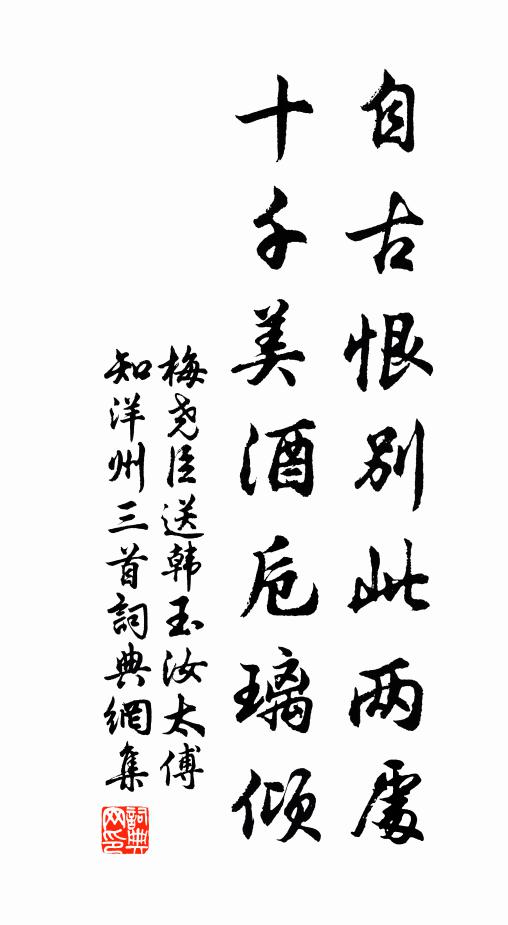 自古恨别此两處
十千美酒卮璃倾
梅尧臣送韩玉汝太傅
知洋州三首詞典網集
詞典网印